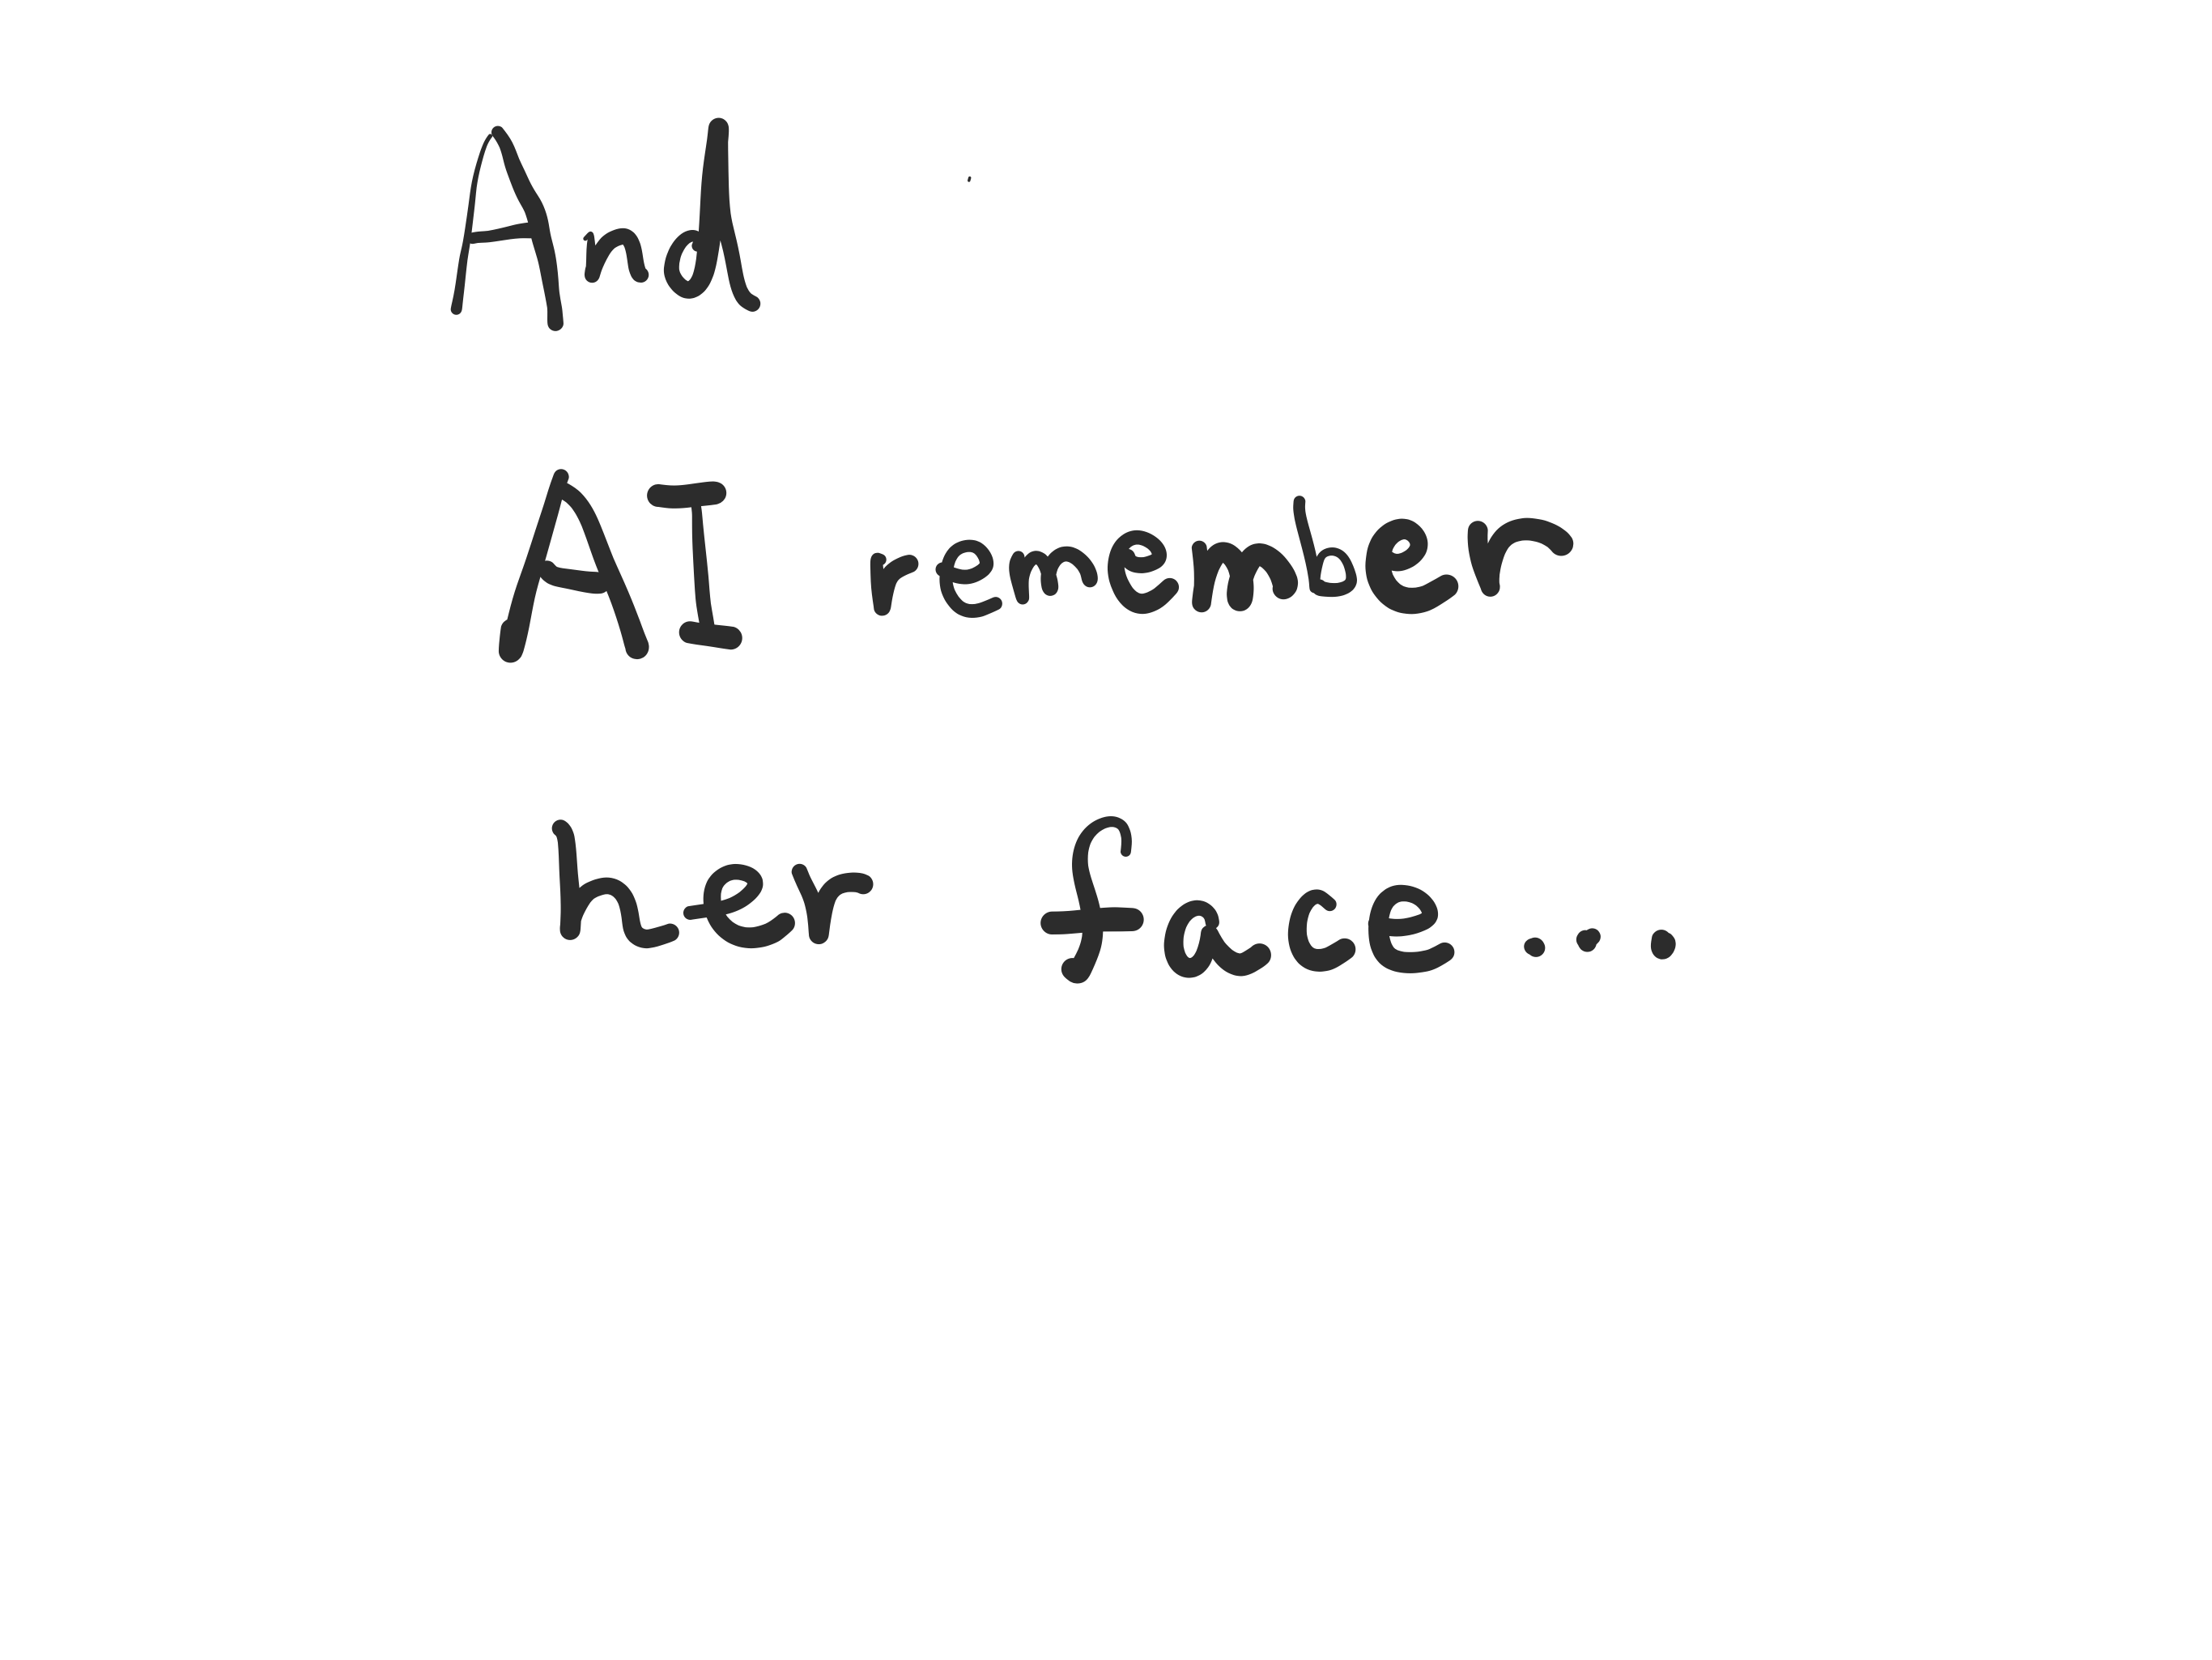 And
AI remember
her face...